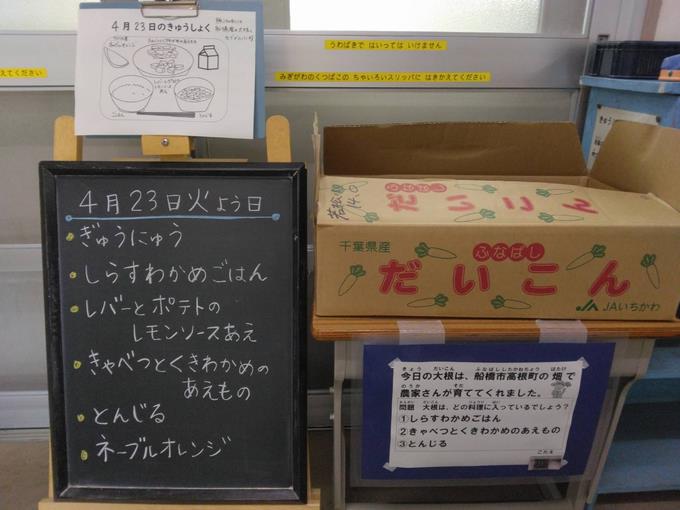 4月23日のきゅうしょく
ごはん
とんじる
うわばきで はいっては いけません
えてください
みぎがわのくつばこの ちゃいろいスリッパに はきかえてください
4月23日火よう日
ぎゅうにゅう
しらすわかめごはん
レバーとポテトの
レモンソースあえ
きゃべつとくきわかめの
あえもの
とんじる
ネーブルオレンジ
ふなばし
だいこん
千葉県産
ふなばし
だいこん
JAいちかわ
今日の大根は、船橋市高根町の畑で
農家さんが育ててくれました。
問題 大根は、どの料理に入っているでしょう?
①しらすわかめごはん
②きゃべつとくきわかめのあえもの
③とんじる
こたえ